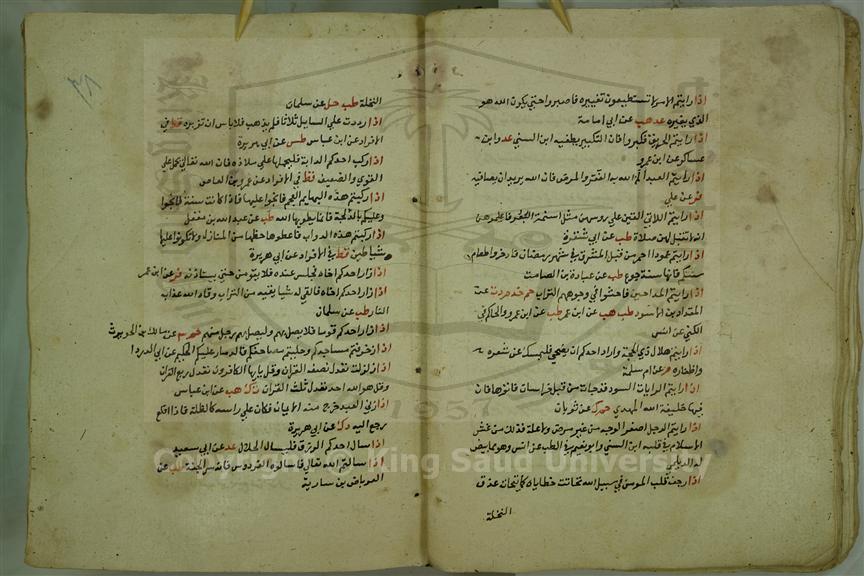 اذا رايتم الامر لا تستطيعون تغييره فاصبروا حتى يكون الله هو
الذي يغيره عد هب عن ابي امامة
اذا رايتم الحريق فكبروا فان التكبير يطفيه ابن السني عد وابن
عساكر عن ابن عمرو
اذا رايتم العبد الم الله به الفقر والمرض فان الله يريد ان يصافيه
فر عن علي
اذا رايتم اللاتي القين على روسهن مثل اسنمة البخت فاعلموهن
انه لا تقبل لهن صلاة طب عن ابي شقرة
اذا رايتم عمودا احمر من قبل المشرق في شهر رمضان فادخروا طعام
سنتكم فانها سنة جوع طب عن عبادة بن الصامت
اذا رايتم المداحين فاحثوا في وجوههم التراب حم خد م د ت عن
المقداد بن الاسود طب هب عن ابن عمر طب عن ابن عمرو والحاكم في
الكني عن انس
اذا رايتم هلال ذي الحجة واراد احدكم ان يضحي فليمسك عن شعره
واظفاره م عن ام سلمة
اذا رايتم الرايات السود قد جات من قبل خراسان فاتوها فان
فيها خليفة الله المهدي حم ك عن ثوبان
اذا رايتم الرجل اصفر الوجه من غير مرض ولا علة فذلك من غش
الاسلام في قلبه ابن السني وابو نعيم في الطب عن انس وهو مما بيض
له الديلمي
اذا رجف قلب المومن في سبيل الله تحاتت خطاياه كما تحات عذق
النخلة
النخلة طب حل عن سلمان
اذا رددت على السايل ثلاثا فلم يذهب فلا باس ان تزبره قط في
الافراد عن ابن عباس طس عن ابي هريرة
اذا ركب احدكم الدابة فليحملها على ملاذه فان الله تعالى يحمل على
القوي والضعيف قط في الافراد عن عمرو بن العاص
اذا ركبتم هذه البهايم العجم فانجوا عليها فاذا كانت سنة فانجوا
وعليكم بالدلجة فانما يطويها الله طب عن عبد الله بن مغفل
اذا ركبتم هذه الدواب فاعطوها حظها من المنازل ولا تكونوا عليها
شياطين قط في الافراد عن ابي هريرة
اذا زار احدكم اخاه فجلس عنده فلا يقومن حتى يستاذنه فر عن ابن عمر
اذا زار احدكم اخاه فالقى له شيا يقيه من التراب وقاه الله عذاب
النار طب عن سلمان
اذا زار احدكم قوما فلا يصل بهم وليصل بهم رجل منهم حم عن مالك بن الحويرث
اذا زخرفتم مساجدكم وحليتم مصاحفكم فالدمار عليكم الحكيم عن ابي الدردا
اذا زلزلت تعدل نصف القران وقل يا ايها الكافرون تعدل ربع القران
وقل هو الله احد تعدل ثلث القران ت ك هب عن ابن عباس
اذا زنى العبد خرج منه الايمان فكان على راسه كالظلة فاذا اقلع
رجع اليه د ك عن ابي هريرة
اذا سال احدكم الرزق فليسال الحلال عد عن ابي سعيد
اذا سالتم الله تعالى فاسالوه الفردوس فانه سر الجنة طب عن
العرباض بن سارية
1957
King Saud University